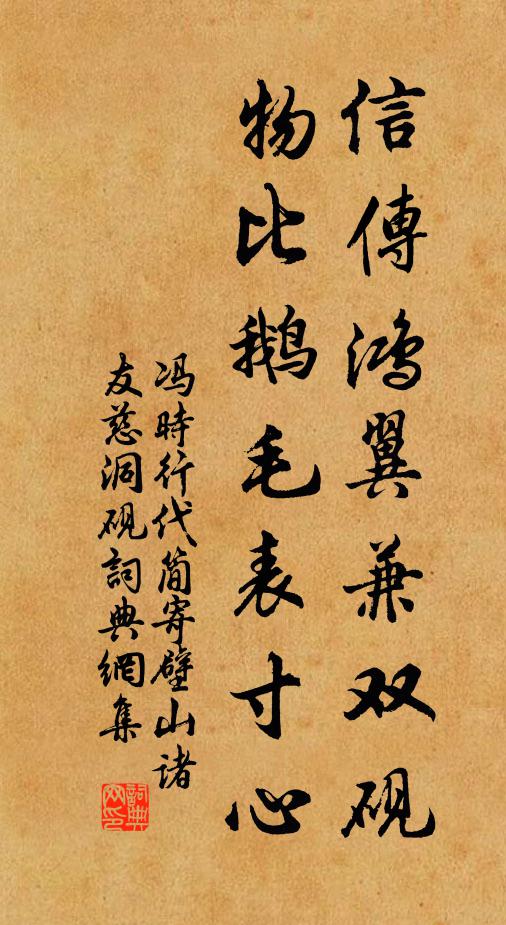 信傳鸿翼兼双砚
物比鹅毛表寸心
冯時行代简寄璧山诸
友慈洞砚詞典網集
詞典網印